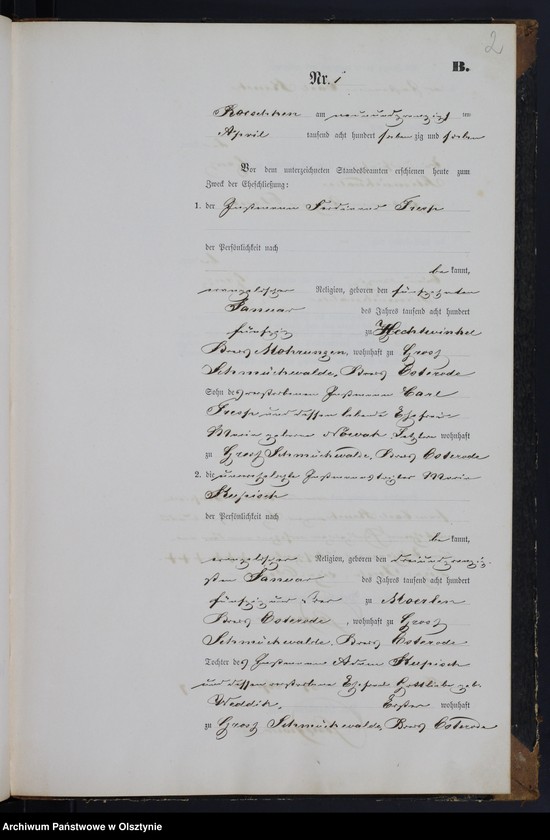 2
B.
Nr. 1
am neunundzwanzigsten
April tausend acht hundert siebenzig und sieben
Vor dem unterzeichneten Standesbeamten erschienen heute zum
Zweck der Eheschließung:
1. der Instmann Ferdinand
der Persönlichkeit nach
bekannt,
evangelischer Religion, geboren den fünfzehnten
Januar des Jahres tausend acht hundert
fünfzig zu Hechtwinkel
Kreis Mohrungen, wohnhaft zu Groß
Schmückwalde, Kreis Osterode
Sohn des verstorbenen Instmann Carl
und dessen Ehefrau
Marie geborene Nowak, Letztere wohnhaft
zu Groß Schmückwalde, Kreis Osterode
2. die unverehelichte Instmannstochter Marie
der Persönlichkeit nach
bekannt,
evangelischer Religion, geboren den dreiundzwanzig-
sten Januar des Jahres tausend acht hundert
fünfzig und vier zu Moerlen
Kreis Osterode, wohnhaft zu Groß
Schmückwalde, Kreis Osterode
Tochter des Instmann Adam
und dessen verstorbene Ehefrau Gottliebe geb.
Weddik, Erster wohnhaft
zu Groß Schmückwalde, Kreis Osterode
Archiwum Państwowe w Olsztynie